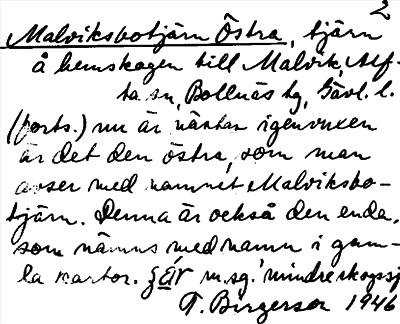 2
Malviksbotjärn Östra, tjärn
å hemskogen till Malvik, Alf-
ta sn, Bollnäs tg, Gävl. l.
(forts.) nu är nästan igenvuxen
är det den östra, som man
avser med namnet Malviksbo-
tjärn. Denna är också den enda,
som nämns med namn i gam-
la kartor. m.sg. mindre skogssj
T. Birgersson 1946